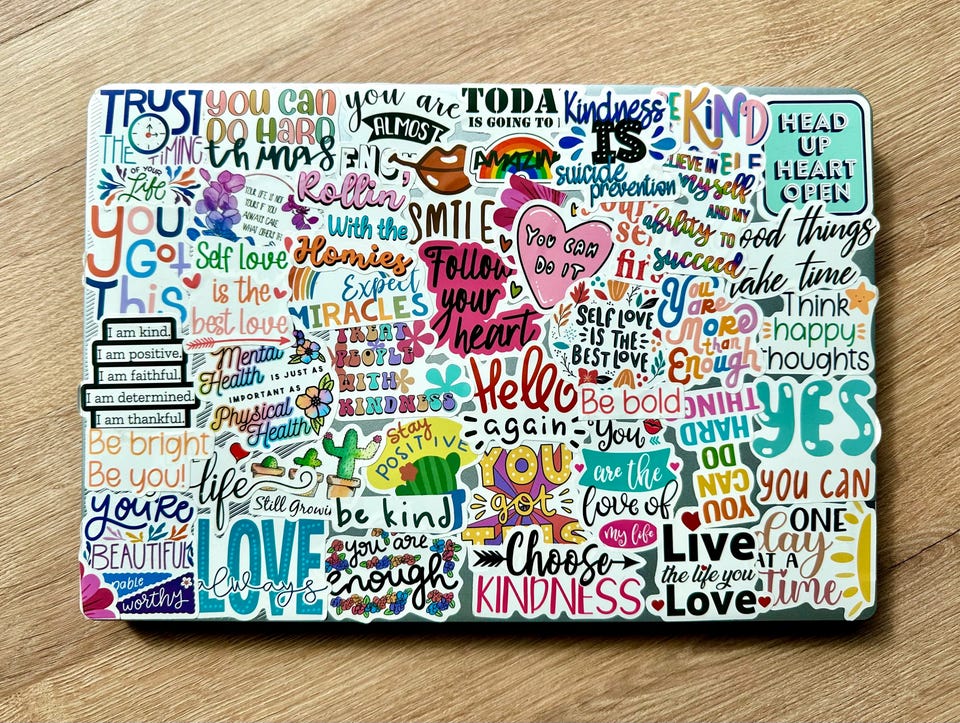 TRUST
THE TIMING
OF YOUR
Life
YOU CAN
DO HARD
things
you are
ALMOST
TODA
IS GOING TO
AMAZIN
Kindness
IS
suicide
prevention
BE KIND
BELIEVE IN
myself
AND MY
ability TO
succeed
HEAD
UP
HEART
OPEN
YOUR LIFE IS NOT
YOURS IF YOU
ALWAYS CARE
WHAT OTHERS
Rollin'
With the
Homies
SMILE
YOU CAN
DO IT
You
Got
This
Self Love
is the
best love
Expect
MIRACLES
Follow
your
heart
SELF LOVE
IS THE
BEST LOVE
You
are
More
than
Enough
ood things
take time
Think
happy
thoughts
I am kind.
I am positive.
I am faithful.
I am determined.
I am thankful.
Mental
Health IS JUST AS
IMPORTANT AS
Physical
Health
TREAT
PEOPLE
WITH
KINDNESS
Hello
again
Be bold
YOU CAN
DO
HARD
THING
YES
Be bright
Be you!
life
Still growin
stay
POSITIVE
be kind
YOU
got
THIS
You
are the
love of
my life
YOU CAN
YOU'RE
BEAUTIFUL
pable
worthy
LOVE
always
you are
enough
Choose
KINDNESS
Live
the life you
Love
ONE
day
AT A
Time